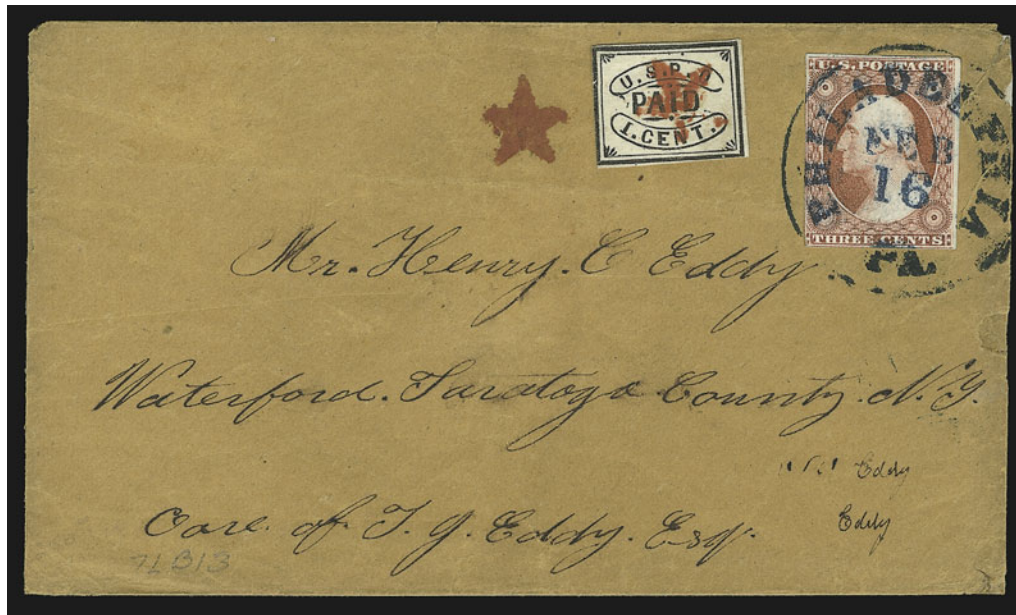 U.S.P.O
PAID
1.CENT.
U.S. POSTAGE
THREE CENTS
PHILADELPHIA
FEB
16
PA.
Mr. Henry. C Eddy
Waterford. Saratoga County. N.Y.
Eddy
Care. of T. J. Eddy. Esq.
Eddy
7LB13